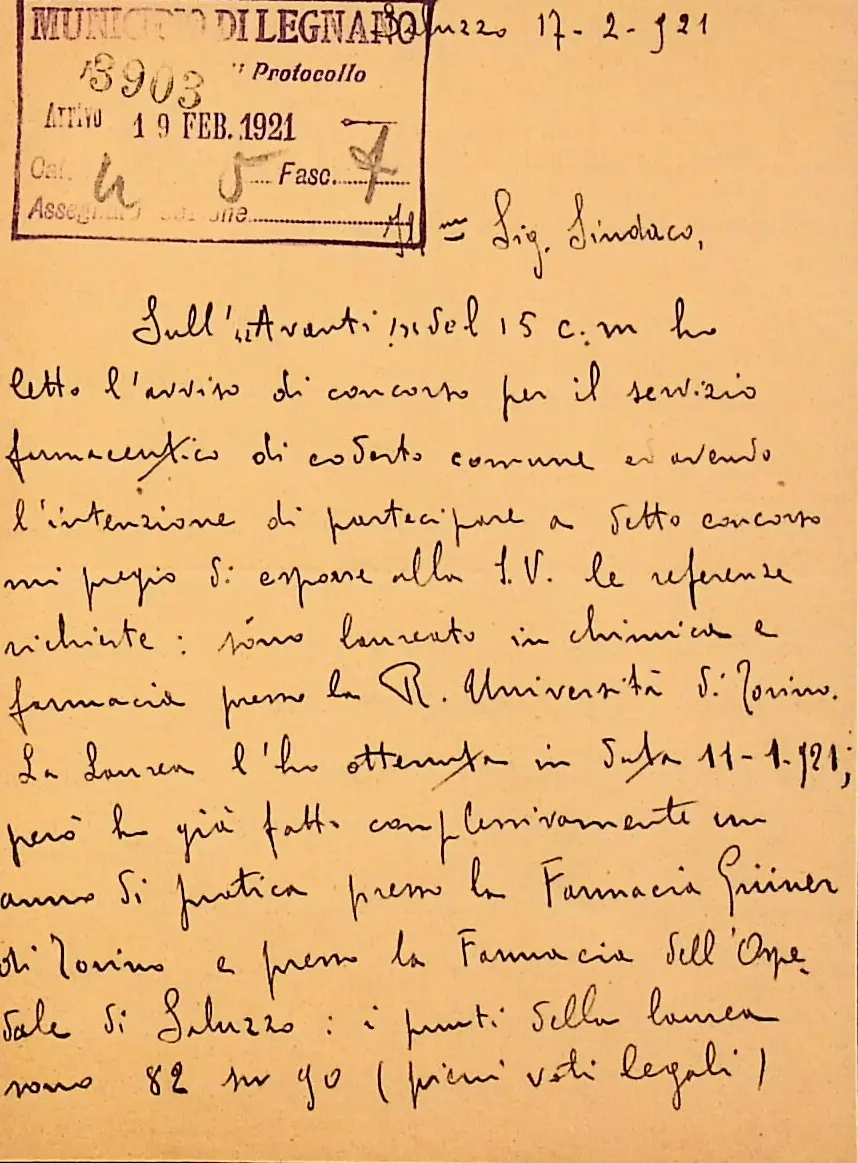 MUNICIPIO DI LEGNANO
Saluzzo 17-2-921
3903 Protocollo
Arrivo 19 FEB. 1921
Cat. 4 5 Fasc. 7
Assegnato
Ill = Sig. Sindaco,
Sull'"Avanti" del 15 c.m ho
letto l'avviso di concorso per il servizio
farmaceutico di codesto comune ed avendo
l'intenzione di partecipare a detto concorso
mi pregio di esporre alla S.V. le referenze
richieste : sono laureato in chimica e
farmacia presso la R. Università di Torino.
La Laurea l'ho ottenuta in data 11-1-921;
però ho già fatto complessivamente un
anno di pratica presso la Farmacia Grüner
di Torino e presso la Farmacia dell'Ospe
dale di Saluzzo : i punti della laurea
sono 82 su 90 (pieni voti legali)